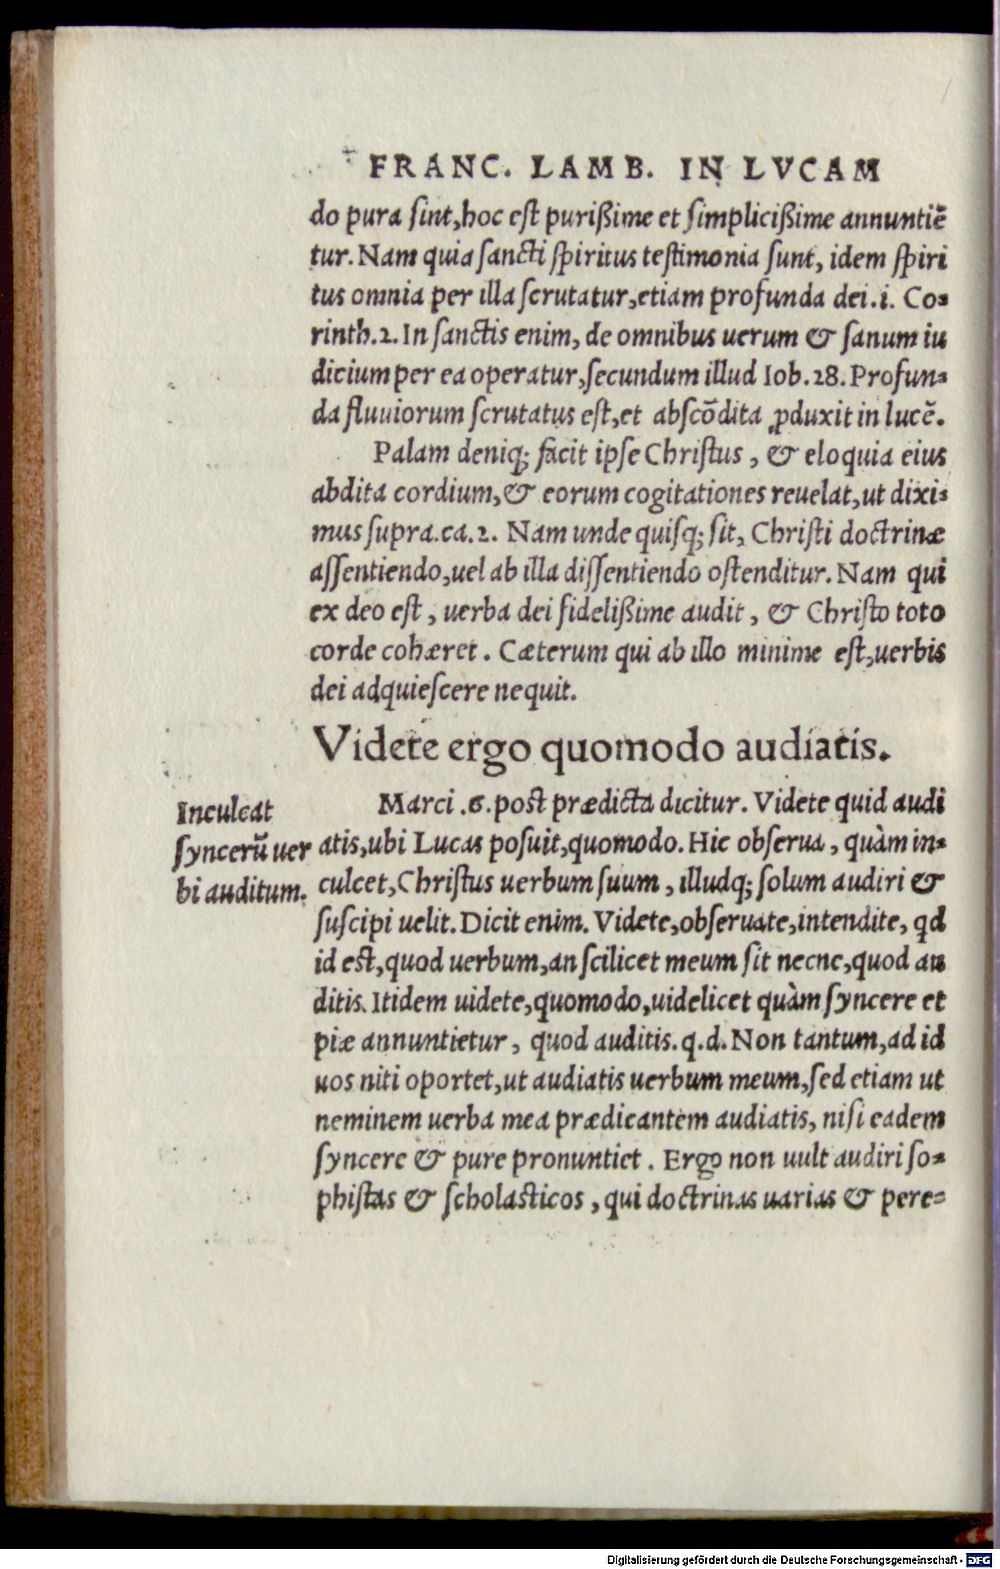 FRANC. LAMB. IN LVCAM
do pura ſint, hoc eſt purißime et ſimplicißime annuntiẽ
tur. Nam quia ſancti ſpiritus teſtimonia ſunt, idem ſpiri
tus omnia per illa ſcrutatur, etiam profunda dei. i. Co-
rinth. 2. In ſanctis enim, de omnibus uerum & ſanum iu
dicium per ea operatur, ſecundum illud Iob. 28. Profun-
da fluuiorum ſcrutatus eſt, et abſcõdita ꝓduxit in lucẽ.
Palam deniq; facit ipſe Chriſtus, & eloquia eius
abdita cordium, & eorum cogitationes reuelat, ut dixi-
mus ſupra. ca. 2. Nam unde quiſq; ſit, Chriſti doctrinæ
aſſentiendo, uel ab illa diſſentiendo oſtenditur. Nam qui
ex deo eſt, uerba dei fidelißime audit, & Chriſto toto
corde cohæret. Cæterum qui ab illo minime eſt, uerbis
dei adquieſcere nequit.
Videte ergo quomodo audiatis.
Marci. 6. poſt prædicta dicitur. Videte quid audi
Inculcat
ſyncerũ uer
bi auditum.
atis, ubi Lucas poſuit, quomodo. Hic obſerua, quàm in-
culcet, Chriſtus uerbum ſuum, illudq; ſolum audiri &
ſuſcipi uelit. Dicit enim. Videte, obſeruate, intendite, qd
id eſt, quod uerbum, an ſcilicet meum ſit necne, quod au
ditis. Itidem uidete, quomodo, uidelicet quàm ſyncere et
piæ annuntietur, quod auditis. q. d. Non tantum, ad id
uos niti oportet, ut audiatis uerbum meum, ſed etiam ut
neminem uerba mea prædicantem audiatis, niſi eadem
ſyncere & pure pronuntiet. Ergo non uult audiri ſo-
phiſtas & ſcholaſticos, qui doctrinas uarias & pere-
Digitalisierung gefördert durch die Deutsche Forschungsgemeinschaft - DFG